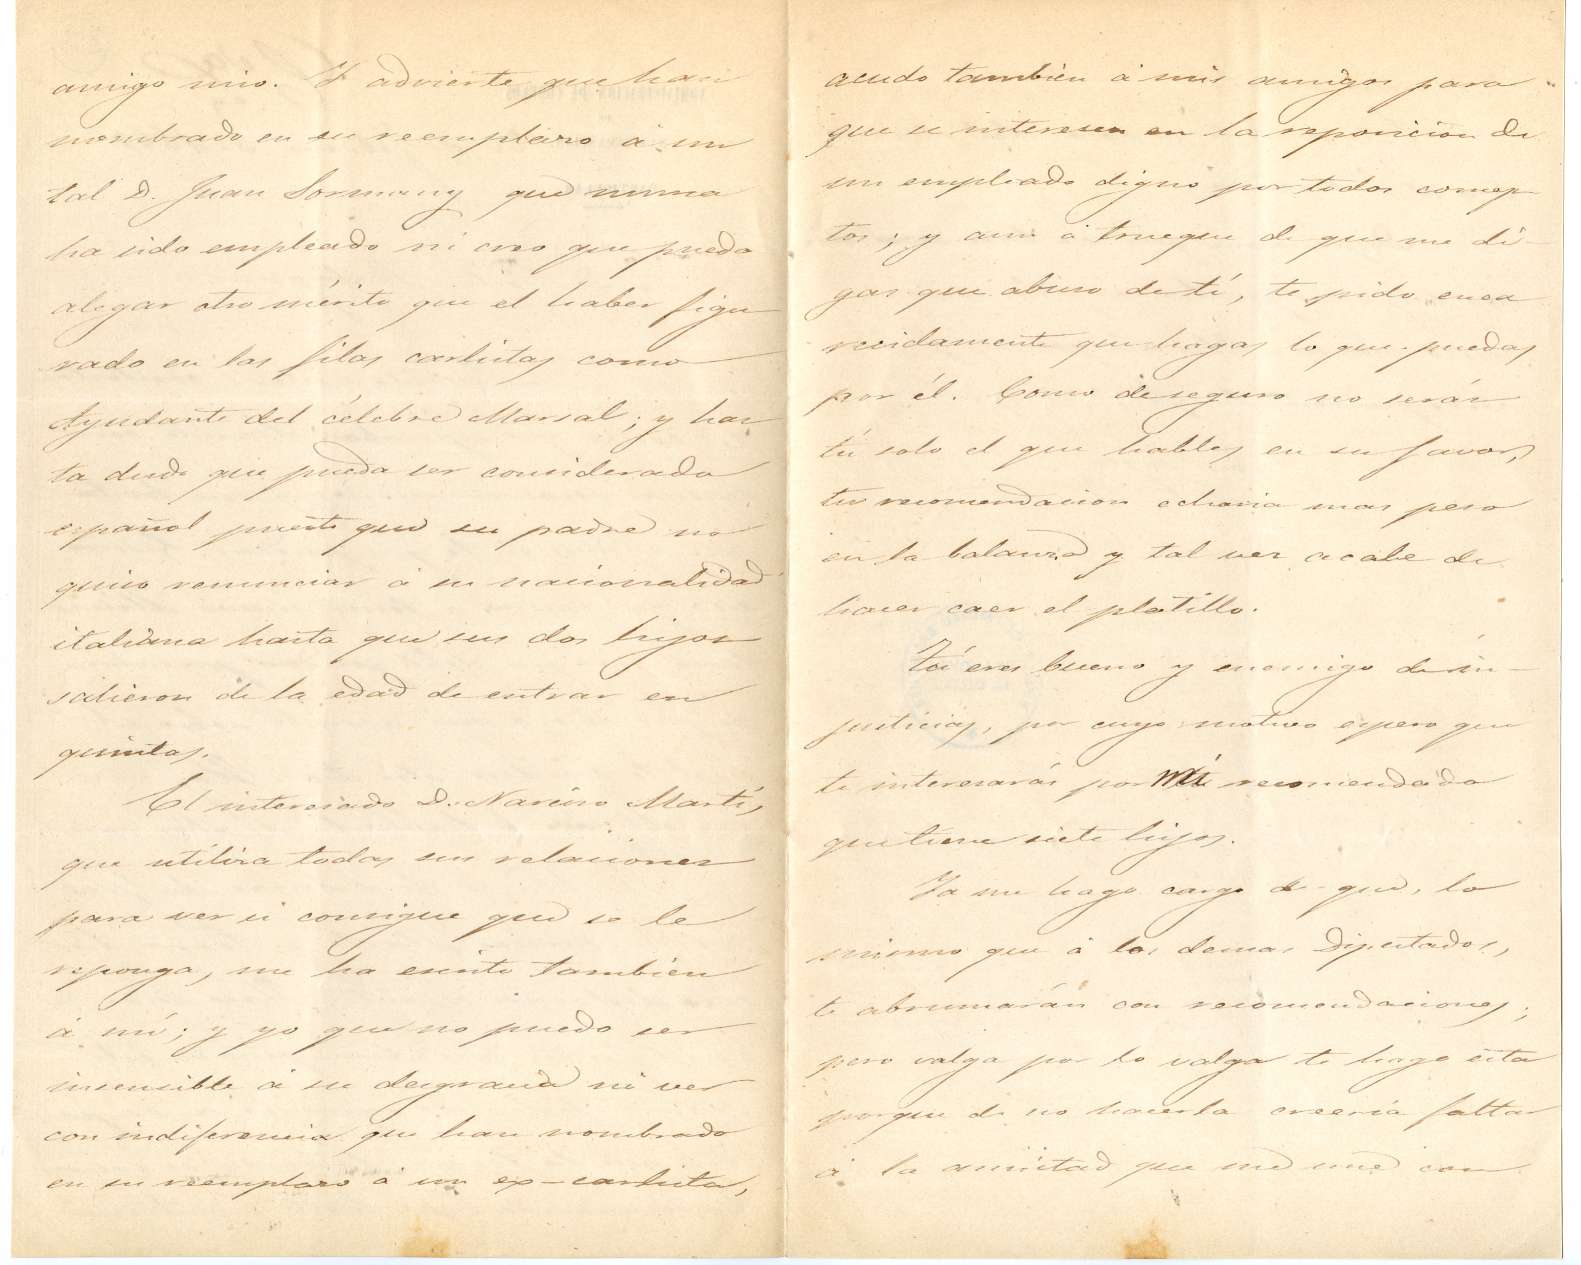 amigo mio. Y advierte que han
nombrado en su reemplazo á un
tal D. Juan Sormany que nunca
ha sido empleado ni creo que pueda
alegar otro mérito que el haber figu
rado en las filas carlistas como
Ayudante del célebre Marsal; y has
ta dudo que pueda ser considerado
español puesto que su padre no
quiso renunciar á su nacionalidad
italiana hasta que sus dos hijos
salieron de la edad de entrar en
quintas.
El interesado D. Narciso Martí,
que utiliza todas sus relaciones
para ver si consigue que se le
reponga, me ha escrito tambien
á mí; y yo que no puedo ser
insensible á su desgracia ni ver
con indiferencia que han nombrado
en su reemplazo á un ex-carlista,
acudo tambien á mis amigos para
que se interesen en la reposicion de
un empleado digno por todos concep
tos; y aun á trueque de que me di-
gas que abuso de tí, te pido enca
recidamente que hagas lo que puedas
por él. Como de seguro no serás
tú solo el que hables en su favor,
tu recomendacion echaria mas peso
en la balanza y tal vez acabe de
hacer caer el platillo.
Tú eres bueno y enemigo de in-
justicias, por cuyo motivo espero que
te interesarás por mi recomendado
que tiene siete hijos.
Ya me hago cargo de que, lo
mismo que á los demas Diputados,
te abrumarán con recomendaciones;
pero valga por lo valga te hago esta
porque de no hacerla creería faltar
á la amistad que me une con